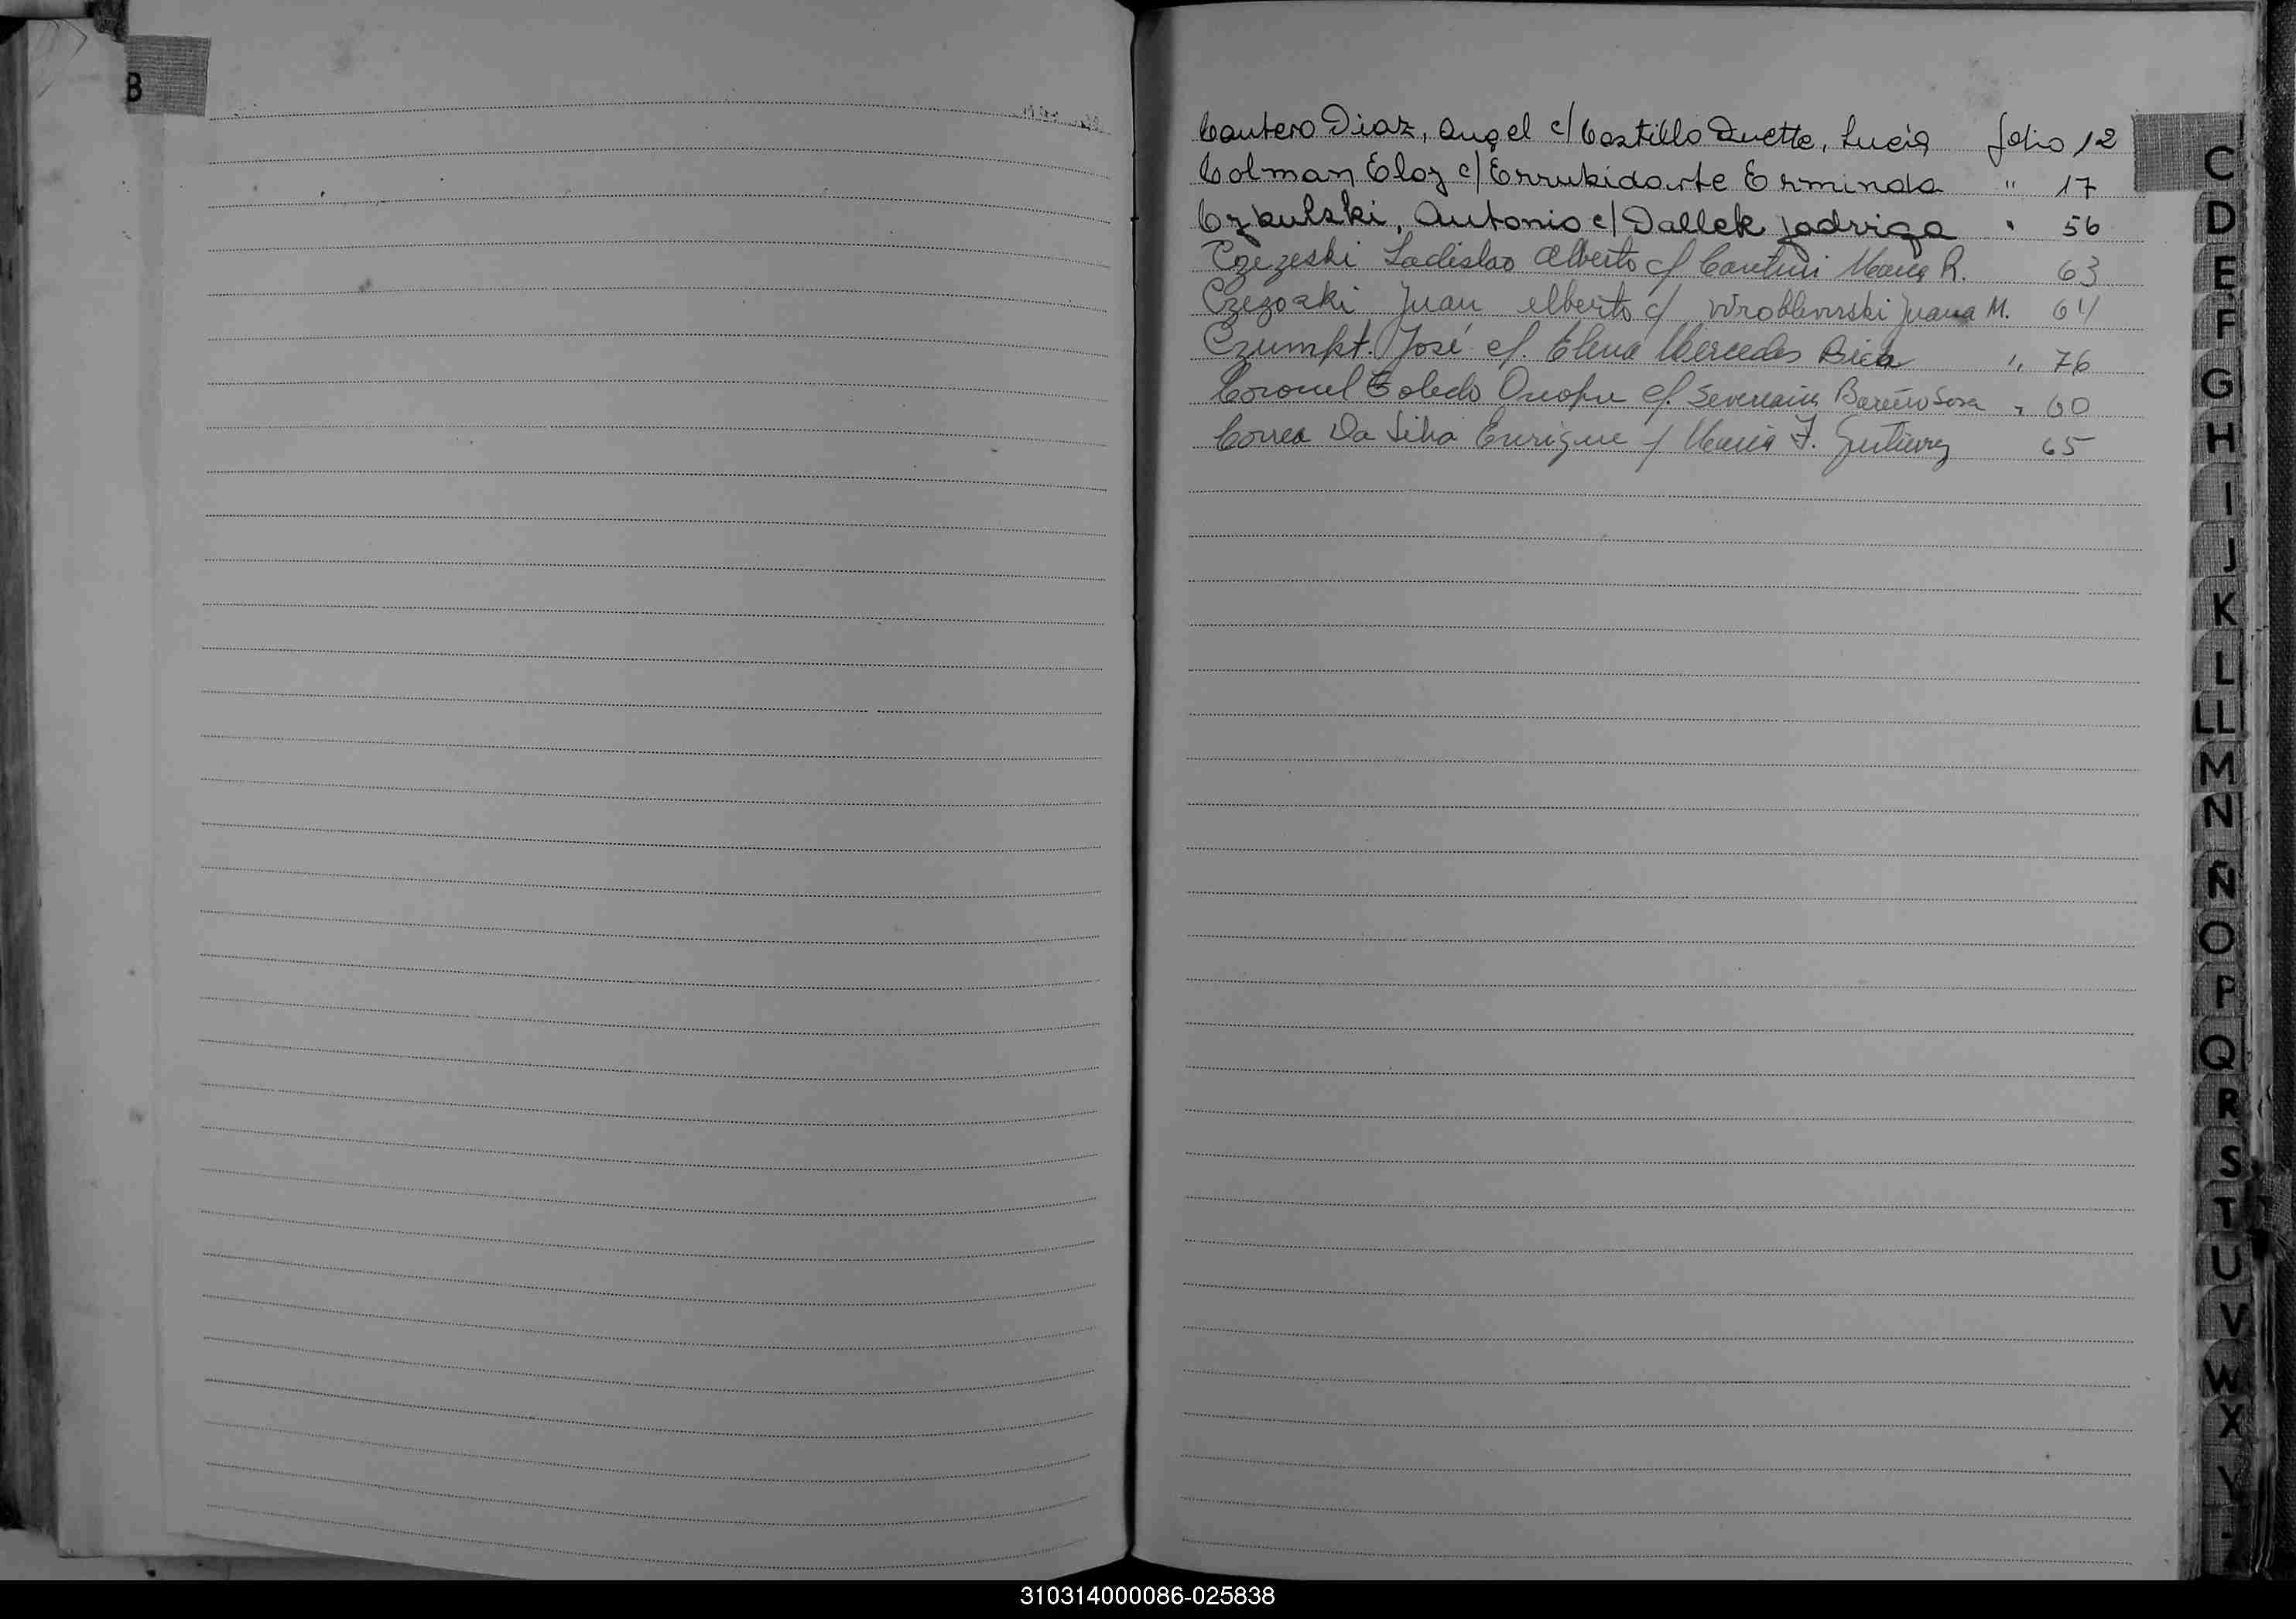 B
Cantero Diaz, Angel c/ Castillo Duette, Lucía folio 12
Colman Eloy c/ Errukidarte Erminda " 17
Czkulski, Antonio c/ Dallek Jadviga " 56
Czezeski Ladislao Alberto c/ Cantini María R. 63
Czezoski Juan Alberto c/ Wroblewski Juana M. 64
Czumpt. José c/. Elena Mercedes Bica " 76
Coronel Toledo Onofre c/. Severiana Bareiro Sosa " 60
Correa Da Silva Enrique / María F. Gutierrez 65
C
D
E
F
G
H
I
J
K
L
LL
M
N
Ñ
O
P
Q
R
S
T
U
V
W
X
Y
310314000086-025838